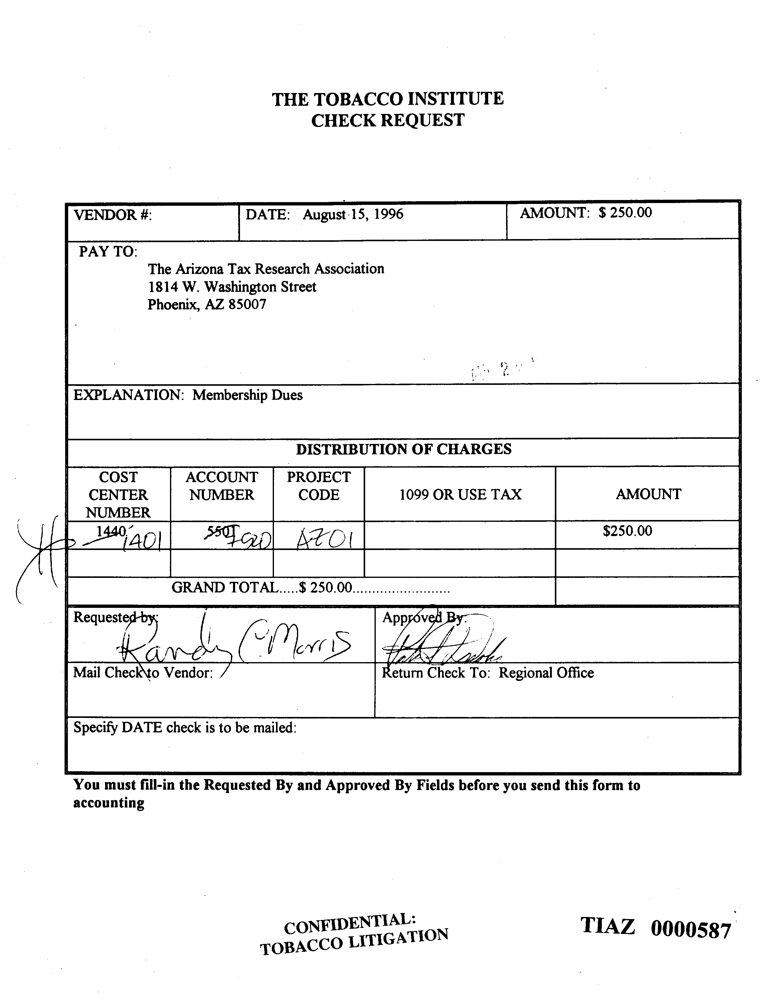 THE TOBACCO INSTITUTE
CHECK REQUEST
VENDOR #: DATE: August 15, 1996 AMOUNT: $ 250.00
PAY TO:
The Arizona Tax Research Association
1814 W. Washington Street
Phoenix, AZ 85007
EXPLANATION: Membership Dues
DISTRIBUTION OF CHARGES
COST CENTER NUMBER ACCOUNT NUMBER PROJECT CODE 1099 OR USE TAX AMOUNT
1440 1401 5501 AZ01 $250.00
GRAND TOTAL.....$ 250.00..........................
Requested by: Approved By:
Randy C Morris
Mail Check to Vendor: Return Check To: Regional Office
Specify DATE check is to be mailed:
You must fill-in the Requested By and Approved By Fields before you send this form to
accounting
CONFIDENTIAL:
TOBACCO LITIGATION
TIAZ 0000587